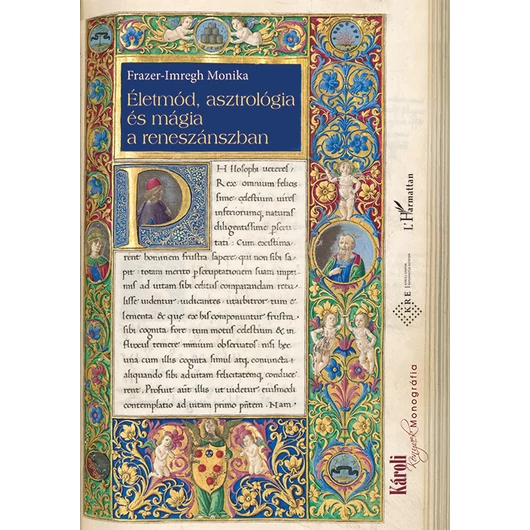 Frazer-Imregh Monika
Életmód, asztrológia
és mágia
a reneszánszban
Philosophi veteres
Rex omnium felicis
sime cælestium vires
inferiorumq naturas
diligentissime pscru
tati: Cum existima
rent hominem frustra sapere qui non sibi sa
pit: totam merito perscruptationem suam inpri
mis ad uitam sibi celitus comparandam retu
lisse uidentur: iudicantes utarbitror tum e-
lementa & que ex his componuntur frustra
sibi cognita fore tum motus celestium & in
fluxus temere nimium observatos nisi hec
una cum illis cognita simul atq coniuncta
aliquando sibi aduitam felicitatemq conduce
rent. Profuit aũt illis ut uidetur eiusmodi
contemplatio ad uitam primo pñtem. Nam
L'Harmattan
KRE
Károli
Könyvek
Monográfia